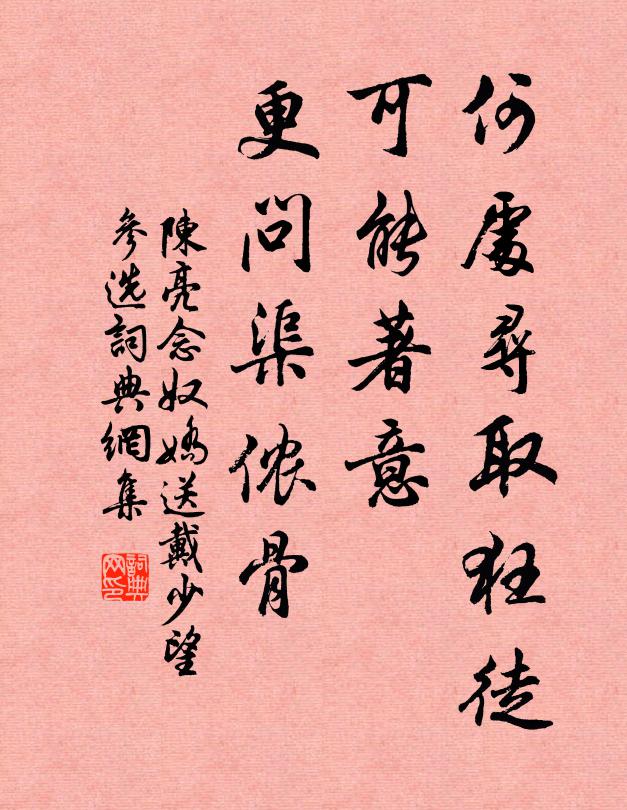 何處尋取狂徒
可能著意
更問渠侬骨
陳亮念奴嬌送戴少望
參选詞典網集
詞典网印